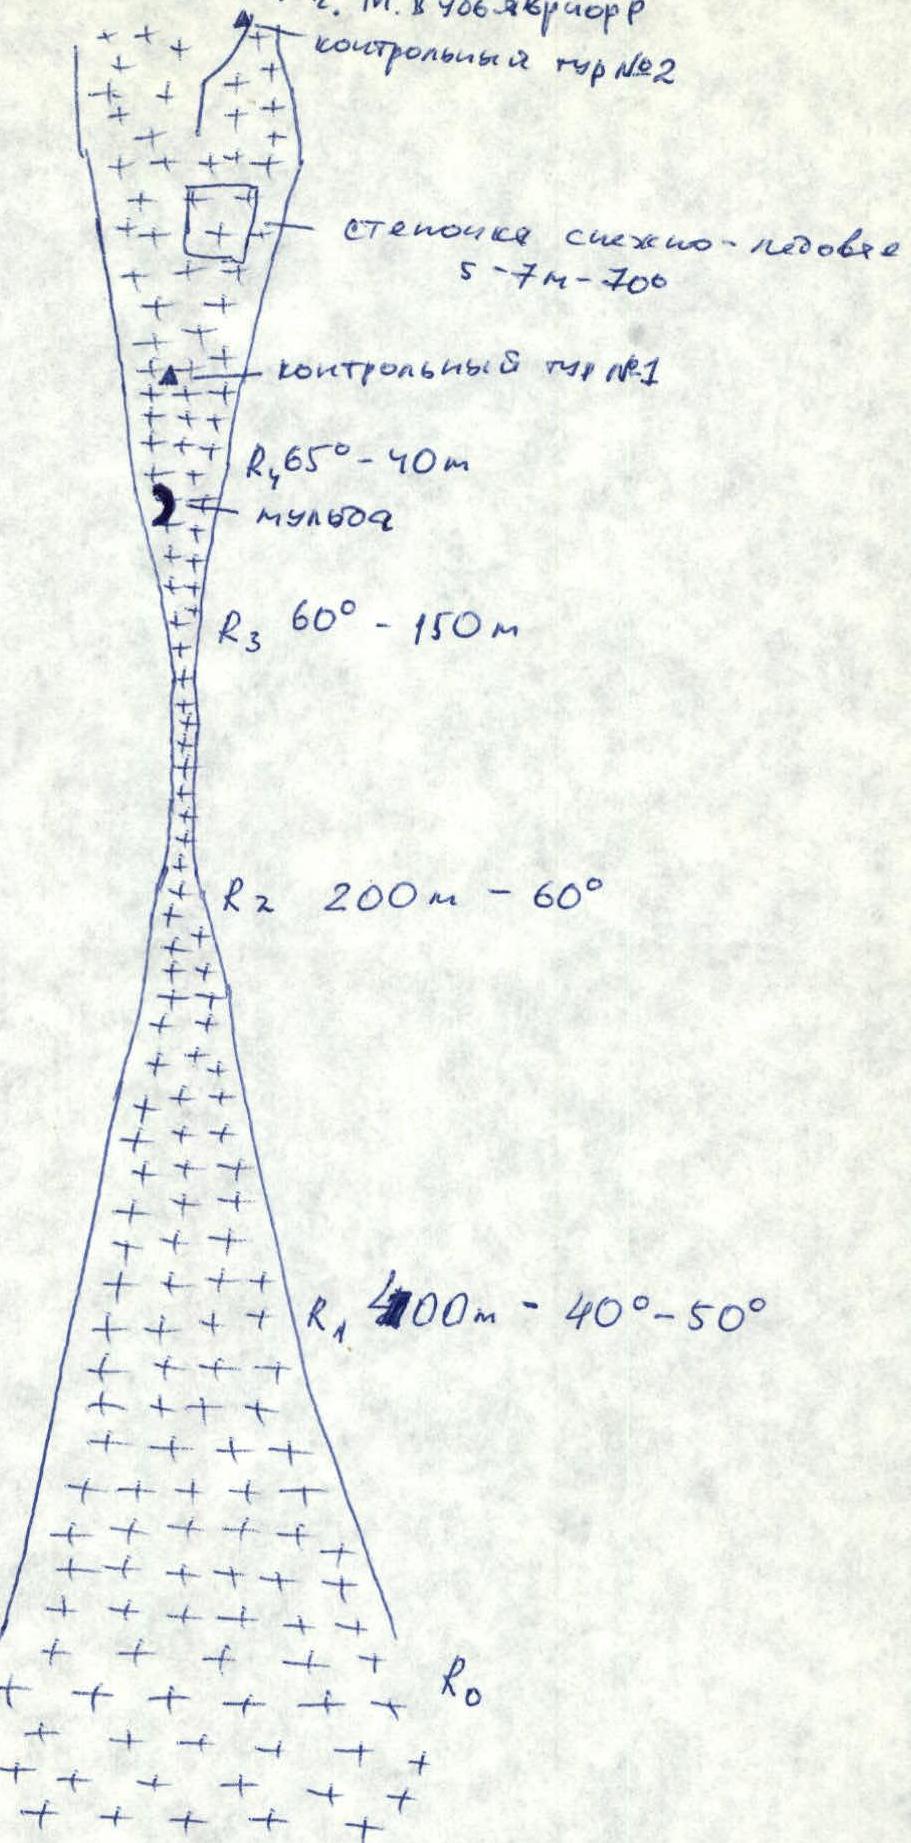 контрольный тур №2
стеночка снежно-ледовая
5-7м-70°
контрольный тур №1
R4 65° - 40м
мульда
R3 60° - 150м
R2 200м - 60°
R1 400м - 40°-50°
R0